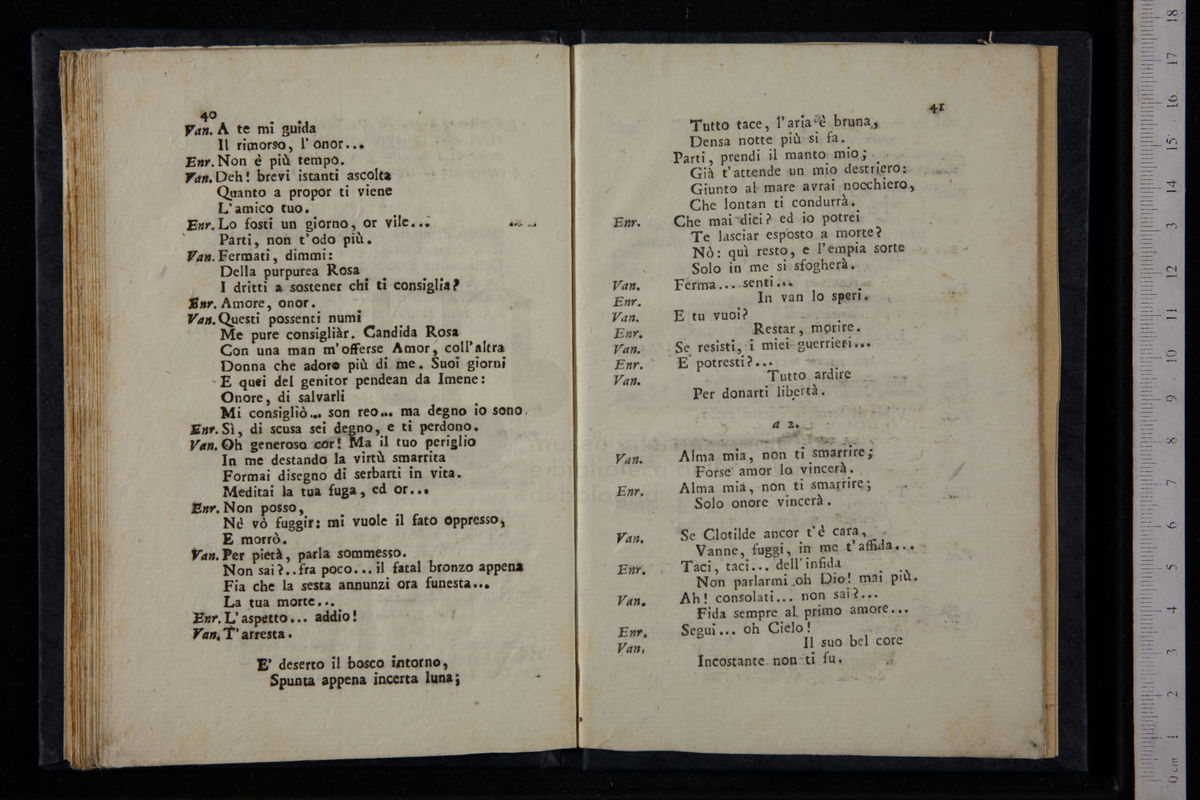 40
Van. A te mi guida
Il rimorso, l'onor...
Enr. Non è più tempo.
Van. Deh! brevi istanti ascolta
Quanto a propor ti viene
L'amico tuo.
Enr. Lo fosti un giorno, or vile...
Parti, non t'odo più.
Van. Fermati, dimmi:
Della purpurea Rosa
I dritti a sostener chi ti consiglia?
Enr. Amore, onor.
Van. Questi possenti numi
Me pure consigliàr. Candida Rosa
Con una man m'offerse Amor, coll'altra
Donna che adoro più di me. Suoi giorni
E quei del genitor pendean da Imene:
Onore, di salvarli
Mi consigliò... son reo... ma degno io sono.
Enr. Sì, di scusa sei degno, e ti perdono.
Van. Oh generoso cor! Ma il tuo periglio
In me destando la virtù smarrita
Formai disegno di serbarti in vita.
Meditai la tua fuga, ed or...
Enr. Non posso,
Nè vò fuggir: mi vuole il fato oppresso,
E morrò.
Van. Per pietà, parla sommesso.
Non sai?..fra poco... il fatal bronzo appena
Fia che la sesta annunzi ora funesta...
La tua morte...
Enr. L'aspetto... addio!
Van. T'arresta.
E' deserto il bosco intorno,
Spunta appena incerta luna;
41
Tutto tace, l'aria è bruna,
Densa notte più si fa.
Parti, prendi il manto mio;
Già t'attende un mio destriero:
Giunto al mare avrai nocchiero,
Che lontan ti condurrà.
Enr. Che mai dici? ed io potrei
Te lasciar esposto a morte?
Nò: quì resto, e l'empia sorte
Solo in me si sfogherà.
Van. Ferma... senti...
Enr. In van lo speri.
Van. E tu vuoi?
Enr. Restar, morire.
Van. Se resisti, i miei guerrieri...
Enr. E potresti?...
Van. Tutto ardire
Per donarti libertà.
a 2.
Van. Alma mia, non ti smarrire;
Forse amor lo vincerà.
Enr. Alma mia, non ti smarrire;
Solo onore vincerà.
Van. Se Clotilde ancor t'è cara,
Vanne, fuggi, in me t'affida...
Enr. Taci, taci... dell'infida
Non parlarmi oh Dio! mai più.
Van. Ah! consolati... non sai?...
Fida sempre al primo amore...
Enr. Segui... oh Cielo!
Van. Il suo bel core
Incostante non ti fu.
0 cm 1 2 3 4 5 6 7 8 9 10 11 12 13 14 15 16 17 18